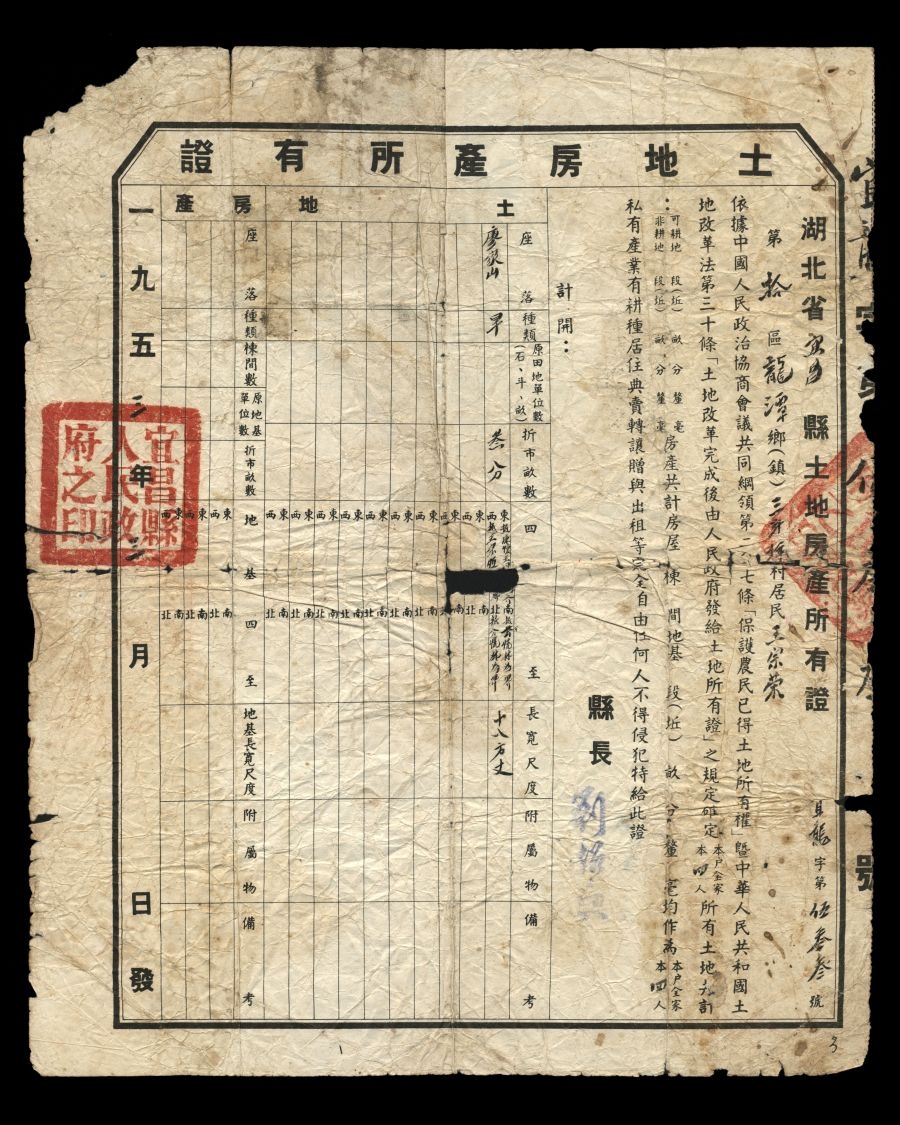 土地房產所有證
湖北省宜昌縣土地房產所有證
字第伍叁叁號
第拾區龍潭鄉(鎮)村居民王宗榮
依據中國人民政治協商會議共同綱領第二十七條「保護農民已得土地所有權」暨中華人民共和國土
地改革法第三十條「土地改革完成後由人民政府發給土地所有證」之規定確定本户全家本四人所有土地共計
:可耕地 段(坵) 畝 分 釐 毫
非耕地 段(坵) 畝 分 釐 毫
房產共計房屋 棟 間地基 段(坵) 畝 分 釐 毫均作為本户全家本四人
私有產業有耕種居住典賣轉讓贈與出租等完全自由任何人不得侵犯特給此證
計開:
縣長
土地
座落
種類
原田地單位數(石、斗、畝)
折市畝數
四至
長寬尺度
附屬物
備考
廖家山
旱
叁分
東
西
南
北
十八方丈
房產
座落
種類
棟間數
原地基單位數
折市畝數
地基四至
地基長寬尺度
附屬物
備考
一九五三年 月 日發
宜昌縣人民政府之印
號
3